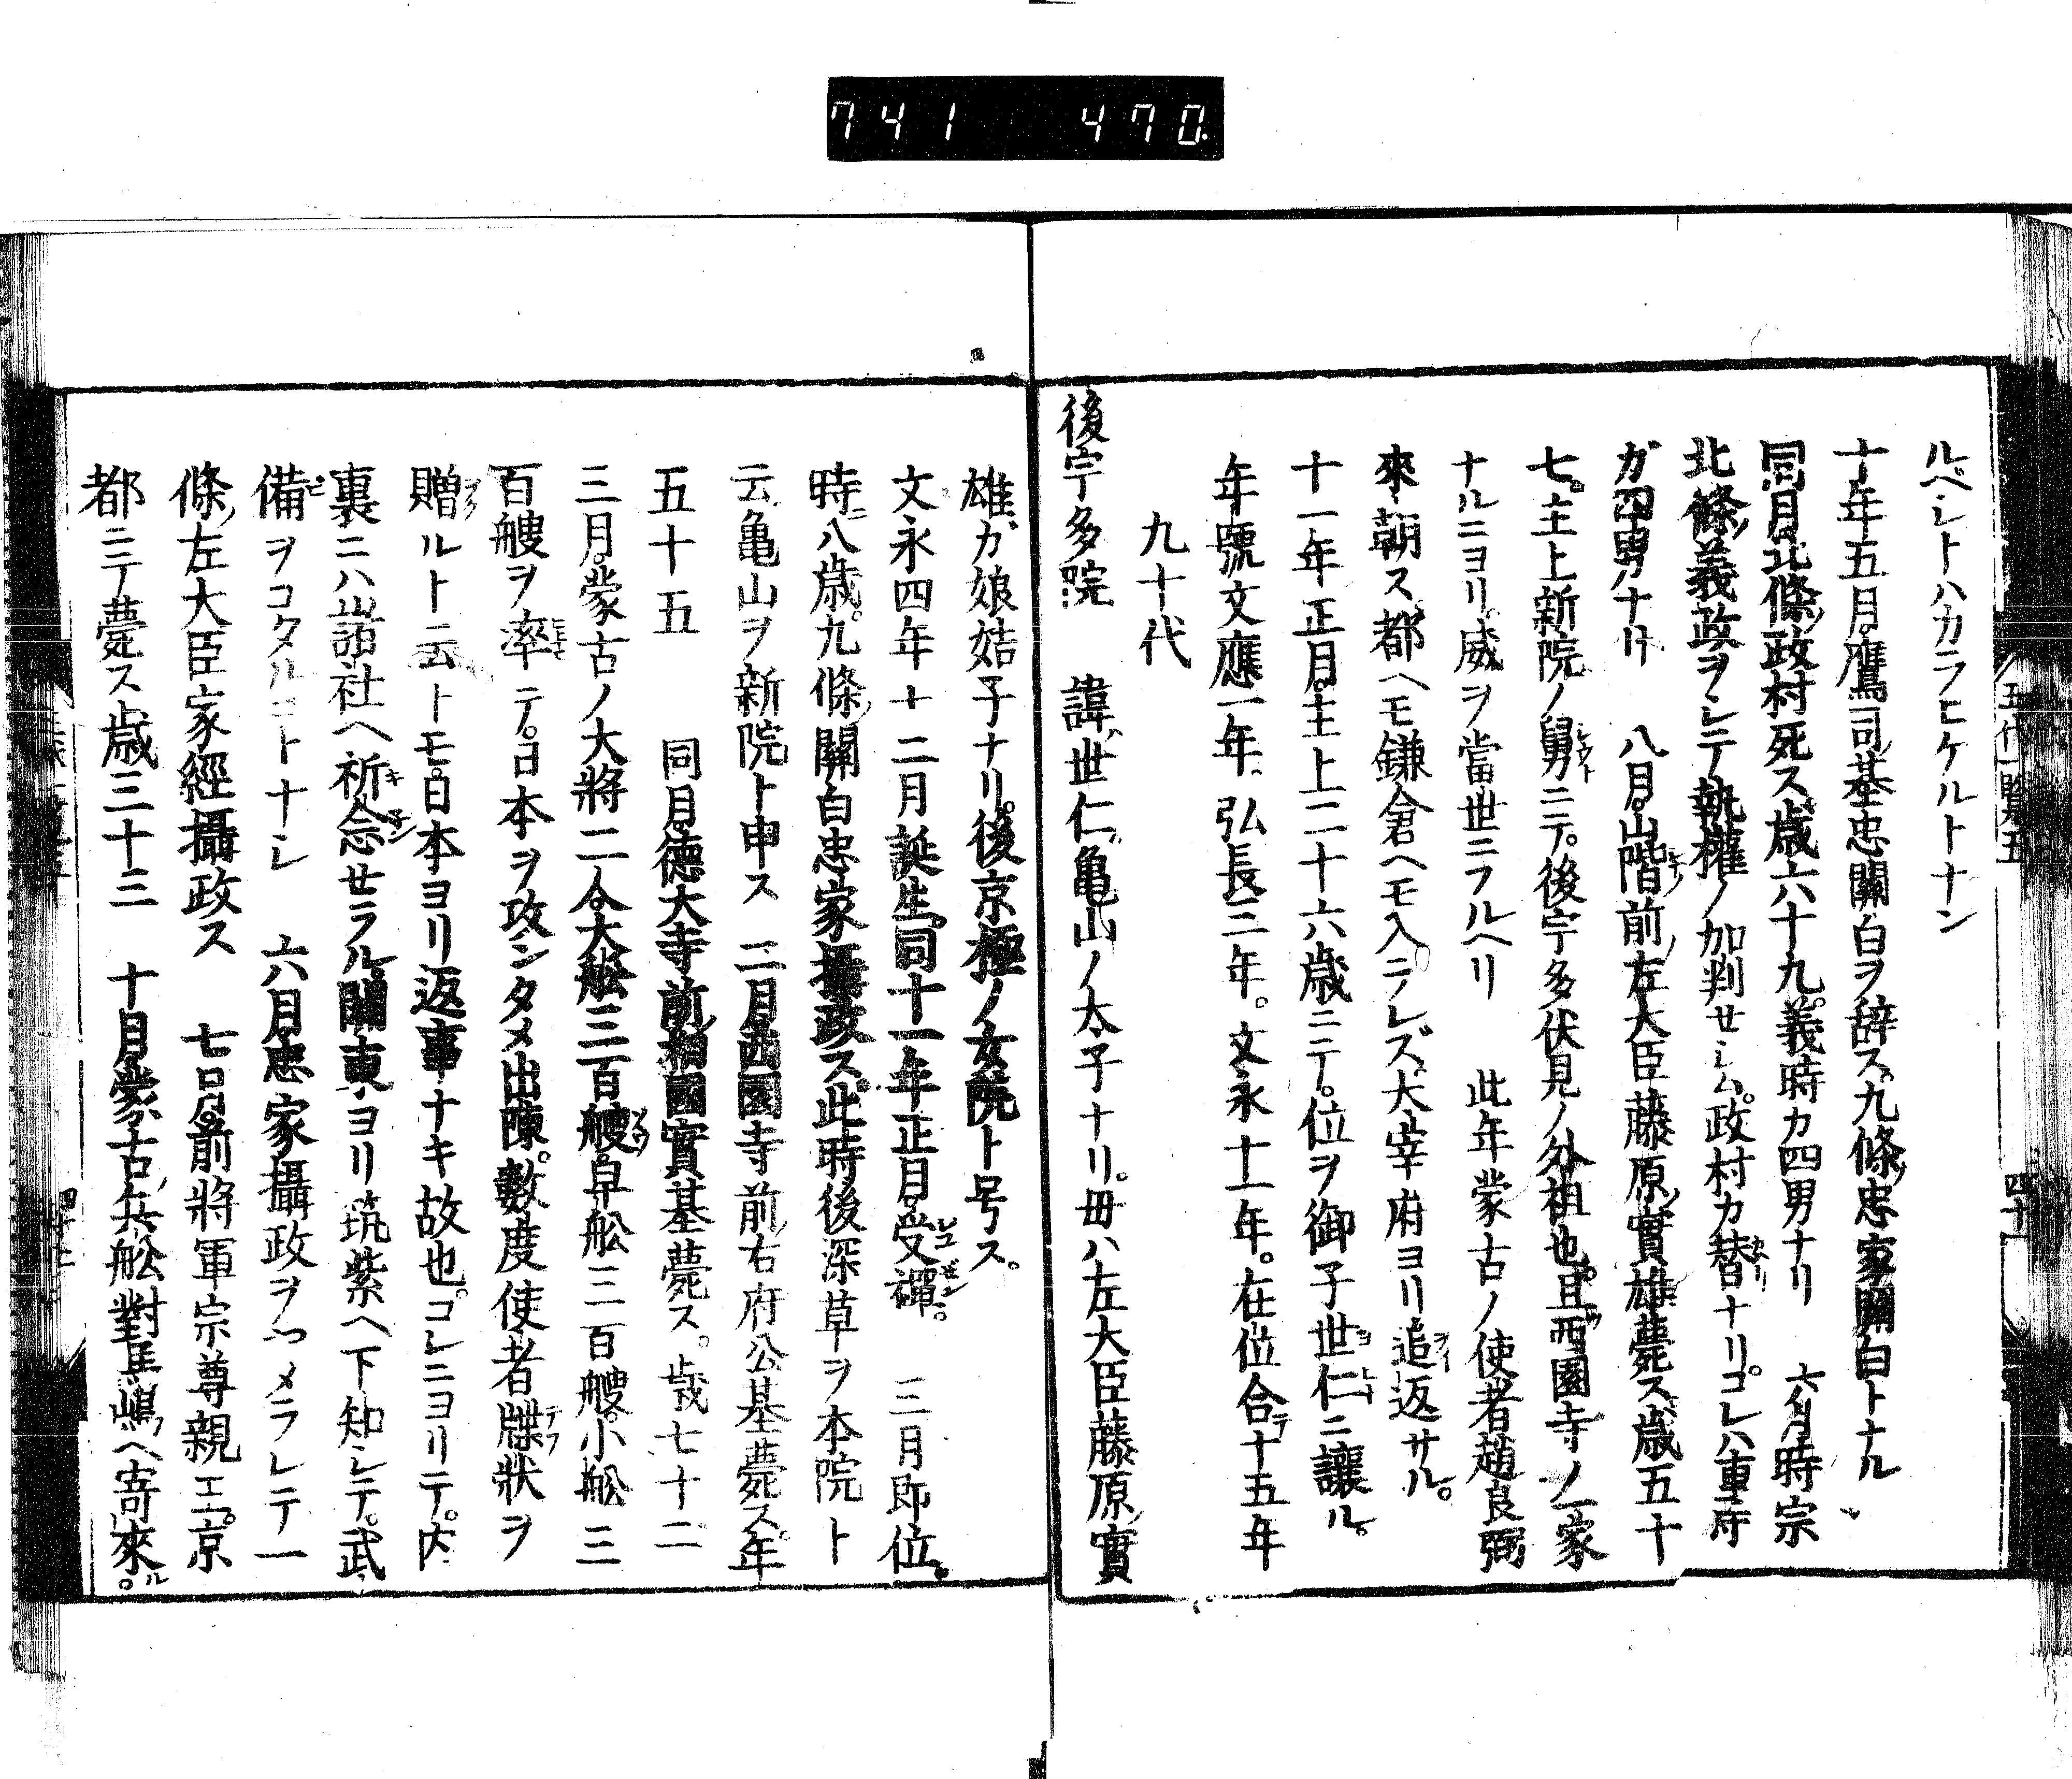 741 470
ルベシトハカラヒケルトナン
十年五月。鷹司ノ基忠關白ヲ辞ス。九條ノ忠家關白トナル
同月。北條ノ政村死ス。歳六十九。義時カ四男ナリ 六月。時宗
北條ノ義政ヲシテ執權ノ加判セシム。政村カ替ナリ。コレハ重時
ガ四男ナリ 八月。山階ノ前ノ左大臣藤原ノ實雄薨ス。歳五十
七。主上新院ノ舅ニテ。後宇多伏見ノ外祖也。且西園寺ノ一家
ナルニヨリ。威ヲ當世ニフルヘリ 此年蒙古ノ使者趙良弼
來朝ス。都ヘモ鎌倉ヘモ入ラレズ。大宰府ヨリ追返サル。
十一年正月。主上二十六歳ニテ。位ヲ御子世仁ニ讓ル。
年號文應一年。弘長三年。文永十一年。在位合テ十五年
九十代
後宇多院 諱ハ世仁。亀山ノ太子ナリ。毋ハ左大臣藤原ノ實
雄カ娘姞子ナリ。後京極ノ女院ト号ス。
文永四年十二月誕生。同十一年正月。受禪。 三月即位。
時ニ八歳。九條ノ關白忠家攝政ス。此時後深草ヲ本院ト
云。亀山ヲ新院ト申ス 二月。西園寺前ノ右府公基薨ス。年
五十五 同月。德大寺前ノ相國實基薨ス。歳七十二
三月。蒙古ノ大將二人。大舩三百艘。早舩三百艘。小舩三
百艘ヲ率テ。日本ヲ攻ンタメ出陳。數度使者牒狀ヲ
贈ルト云トモ。日本ヨリ返事ナキ故也。コレニヨリテ。内
裏ニハ諸社ヘ祈念セラル。關東ヨリ筑紫ヘ下知シテ。武
備ヲコタルコトナシ 六月。忠家攝政ヲヤメラレテ一
條ノ左大臣家經攝政ス 七月。前將軍宗尊親王。京
都ニテ薨ス歳三十三 十月。蒙古ノ兵舩對馬嶋ヘ寄來ル。